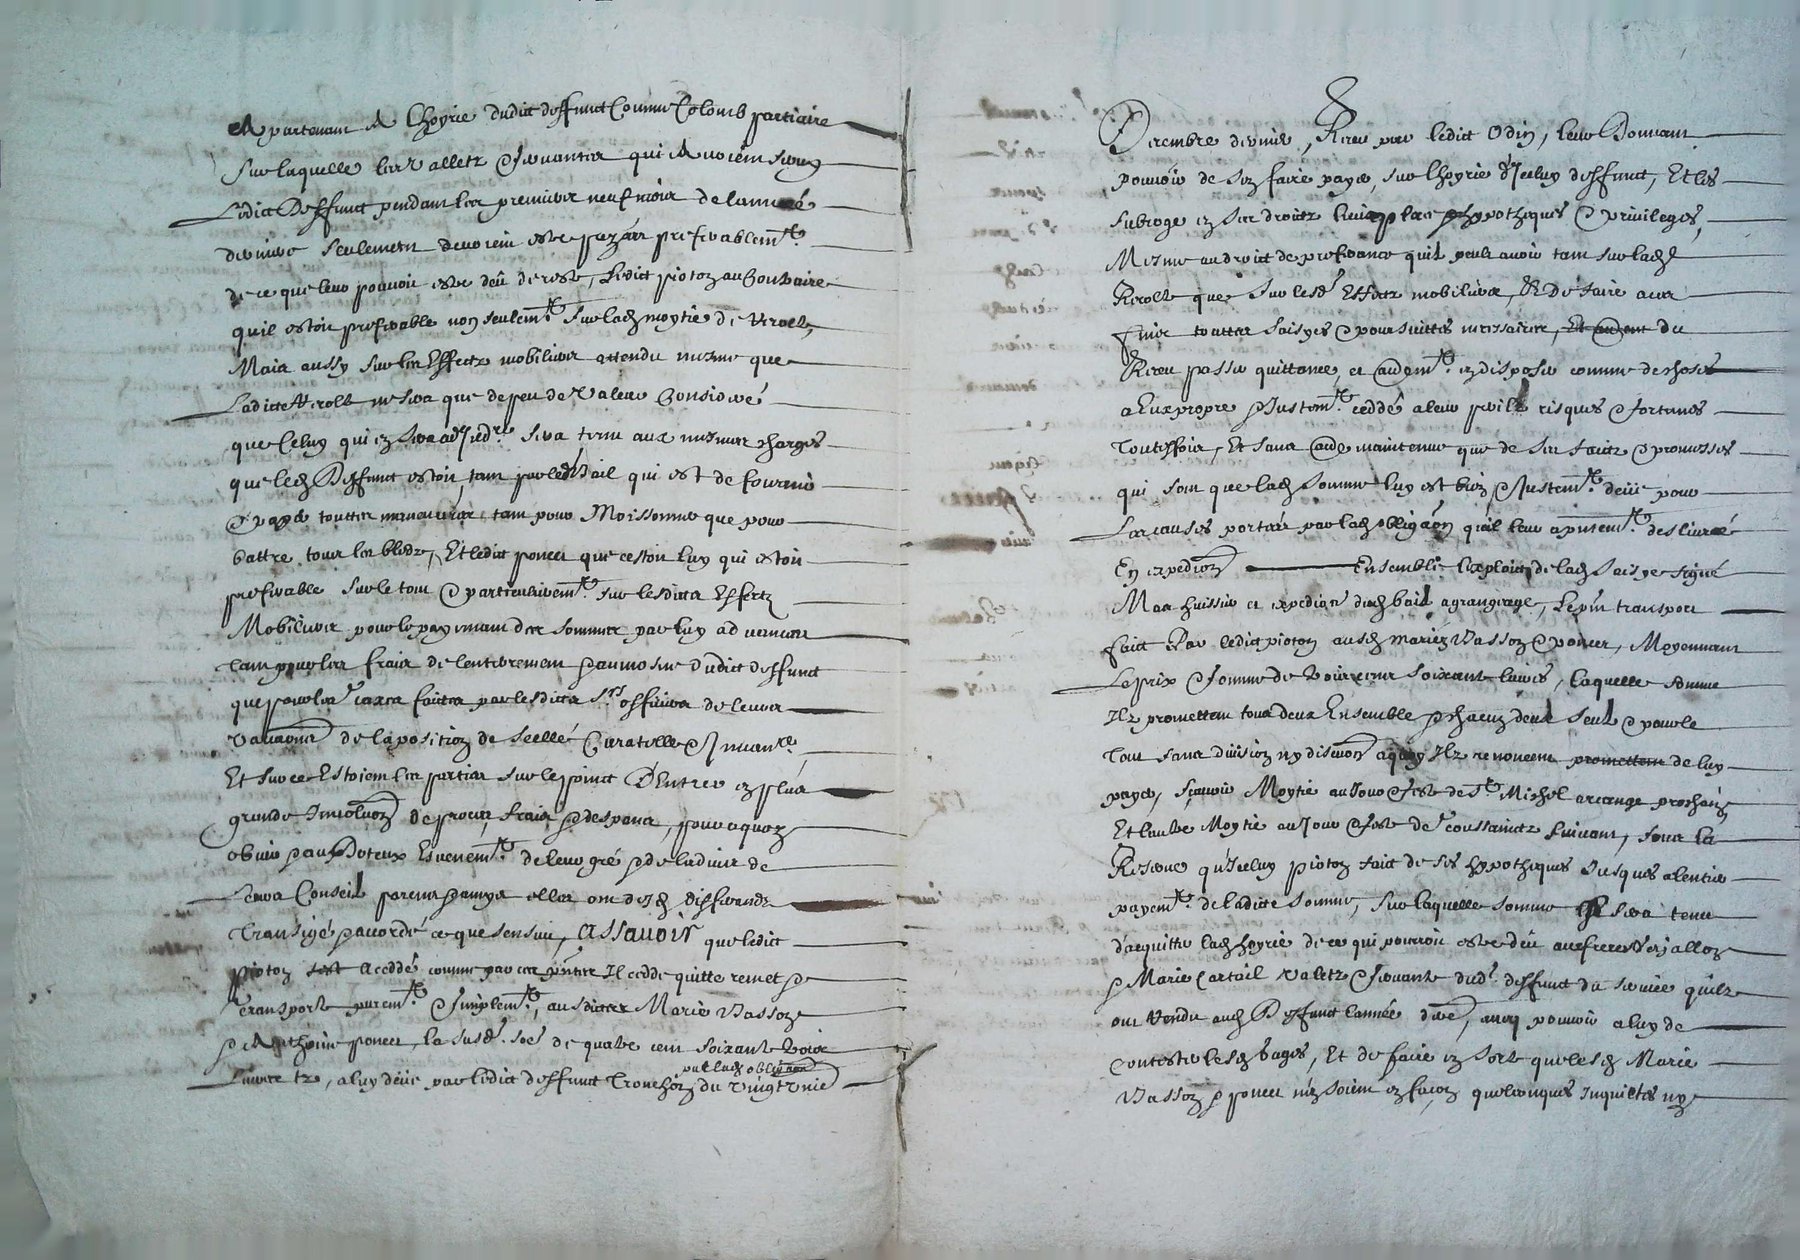 Apartenant A Lhoyrie dudict deffunct Comme Colomb partiaire
Sur laquelle les Valletz & servantes qui Avoient servy
Ledict Deffunct pendant les premiers neuf mois de lannee
derniere seulement devoient estre payéz prefferablemt.
de ce que leur pouvoit estre deu de reste, Ledict pioton au Contraire
quil estoit prefferable non seulemt. sur lad moytie de Recolte,
Mais aussy sur les Effectz mobiliers attendu mesme que
Ladicte Recolte ne sera que de peu de Valeur Consideré
que Celuy qui en sera adjudre. sera tenu aux mesmes charges
que led Deffunct estoit, tant par led Bail qui est de fournir
& payer touttes manoeuvres tant pour Moissonner que pour
battre tous les bledz, Et ledict poncet que cestoit luy qui estoit
prefferable sur le tout & particulieremt. sur lesdicts Effectz
Mobiliers pour le payement des sommes par luy advancees
tant pour les frais de lenterrement & aumosne dudict deffunct
que pour les taxes faictes par lesdicts Srs. officiers de leurs
vacaons de laposition de scellé Curatelle & Invanre.
Et sur ce Estoient les parties sur le poinct D'Entrer en plus
grande Involuon de proces, frais & despens, pour aquoy
obvier & au Doteux Evenemt. de leur gré & de ladvis de
Leurs Conseil parens & amys elles ont desd differends
Transigé & acordé ce que sensuit, Assavoir que ledict
pioton Acceddé comme par ces pntes Il cedde quitte remet &
Transporte purement & simplemt., ausdicts Marie Basson
& Anthoine poncet, la susd. soe de quatre cent soixante Trois
Livres tz, a luy deüe par ledict deffunct Tronchon par lad obligaon du vingt unie
Decembre dernier, Receu par ledict Odin, leur Donnant
pouvoir de sen faire payer, sur lhoyrie d'Iceluy deffunct, Et les
subroge en ses droictz lieu place hypotheques & privileges,
Mesme au droict de prefferance quil peult avoir tant sur lad
Recolte que sur lesd Effectz mobiliers, Et De faire aux
fins touttes saisyes & poursuittes necessaires, du
Receu passer quittance, et audemt. en disposer comme de choses
a Eux propre & Justemt. ceddé a leur peril risques & fortunes
Touttesfois, Et sans aude maintenue que de ses faictz & promesses
qui sont que lad somme luy est bien & Justemt. deüe pour
Les causes portées par lad obligaon qu'il leur a pntemt. deslivree
En expedion Ensemble lexploict de lad saisye signé
Mas huissier et expedion dud bail a grangeage, Le pnt transport
faict Par ledict pioton ausd mariez Basson & poncet, Moyennant
Le prix & somme de Trois cent soixante livres, laquelle somme
Ilz promettent tous deux Ensemble & chacun deux seul & pour le
Tout sans division ny discuon a quoy Ilz renoncent de luy
payer, sçavoir Moytie au Jour & feste de St. Michel arcange prochain
Et lautre Moytie au Jour & feste de Toussainctz suivant, sous la
Reserve qu'Iceluy pioton faict de ses hypotheques Jusques a lentier
payemt. de ladicte somme, sur laquelle somme sera tenu
d'acquitter lad hoyrie de ce qui pourroit estre deu
& Marie Cartail valetz & servante dud. deffunct du service qu'ilz
ont Rendu aud Deffunct lannée dre, avec pouvoir a luy de
Contester lesd gages, Et de faire en sorte que lesd Marie
Basson & poncet n'en soient en façon quelconques Inquietes ny